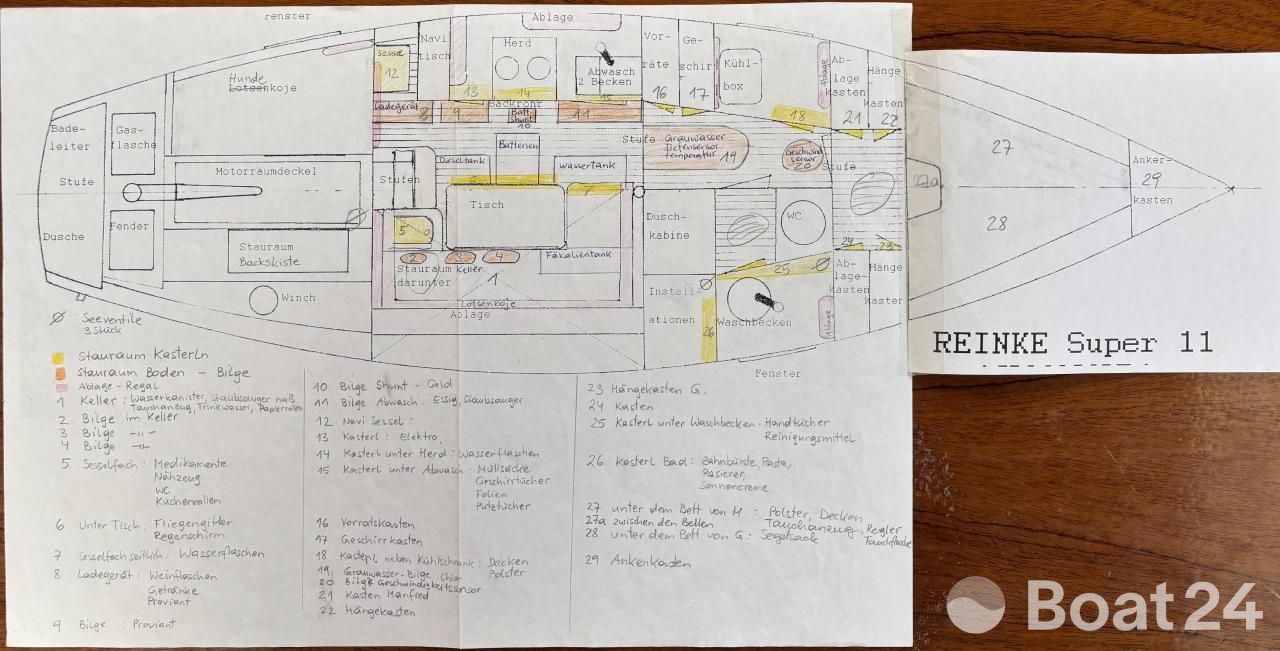 Fenster
Ablage
Navi
tisch
Herd
Abwasch
2 Becken
Vor-
räte
Ge-
schirr
Kühl-
box
Ablage
Ab-
lage
kasten
Hänge
kasten
Sessel
12
13
14
15
16
17
18
21
22
Hunde
Lotsenkoje
Bade-
leiter
Stufe
Dusche
Gas-
flasche
Fender
Motorraumdeckel
Stauraum
Backskiste
Winch
Ladegerät 8
9
Backrohr
Batt
Shunt
10
11
Stufen
Dieseltank
Batterien
Wassertank
6
7
Tisch
5
2
3
4
Stauraum Keller
darunter
1
Fäkalientank
Lotsenkoje
Ablage
Stufe
Grauwasser
Tiefensensor
Temperatur
19
Geschwind
sensor
20
Stufe
Dusch-
kabine
WC
24
23
25
26
Install-
ationen
Waschbecken
Ablage
Ab-
lage-
kasten
Hänge
kasten
Fenster
27
27a
28
Anker-
29
kasten
REINKE Super 11
Seeventile
3 Stück
Stauraum Kasterln
Stauraum Boden - Bilge
Ablage - Regal
1 Keller: Wasserkanister, Staubsauger naß
Tauchanzug, Trinkwasser, Papierrollen
2 Bilge im Keller
3 Bilge -"-
4 Bilge -"-
5 Sesselfach: Medikamente
Nähzeug
WC
Küchenrollen
6 Unter Tisch: Fliegengitter
Regenschirm
7 Sesselfach seitlich: Wasserflaschen
8 Ladegerät: Weinflaschen
Getränke
Proviant
9 Bilge: Proviant
10 Bilge Shunt - Geld
11 Bilge Abwasch: Essig, Staubsauger
12 Navi Sessel:
13 Kasterl: Elektro,
14 Kasterl unter Herd: Wasserflaschen
15 Kasterl unter Abwasch: Müllsäcke
Geschirrtücher
Folien
Putztücher
16 Vorratskasten
17 Geschirrkasten
18 Kasterl neben Kühlschrank: Decken
Polster
19 Grauwasser-Bilge:
20 Bilge Geschwindigkeitssensor
21 Kasten Manfred
22 Hängekasten
23 Hängekasten G.
24 Kasten
25 Kasterl unter Waschbecken: Handtücher
Reinigungsmittel
26 Kasterl Bad: Zahnbürste, Pasta,
Rasierer,
Sonnencreme
27 unter dem Bett von M: Polster, Decken
27a zwischen den Betten Tauchanzug, Regler
28 unter dem Bett von G: Segelsack Tauchflasche
29 Ankerkasten
Boat24